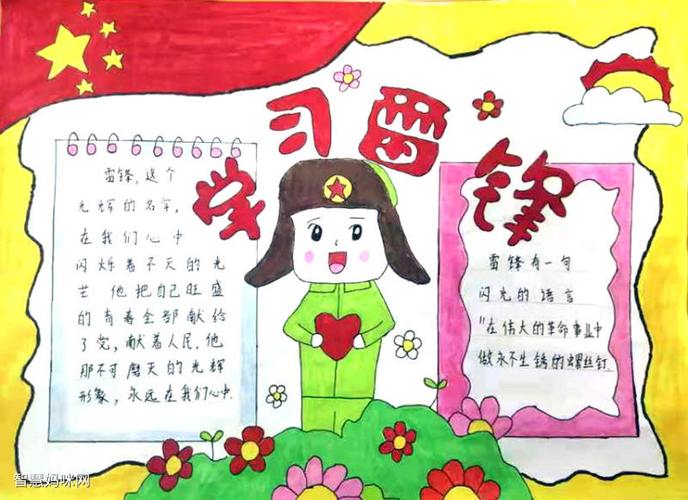 学习雷锋
雷锋,这个
光辉的名字,
在我们心中
闪烁着不灭的光
芒 他把自己旺盛
的青春全部献给
了党,献着人民,他
那不可磨灭的光辉
形象,永远在我们心中.
雷锋有一句
闪光的语言
"在伟大的革命事业中
做永不生锈的螺丝钉.
智慧妈咪网